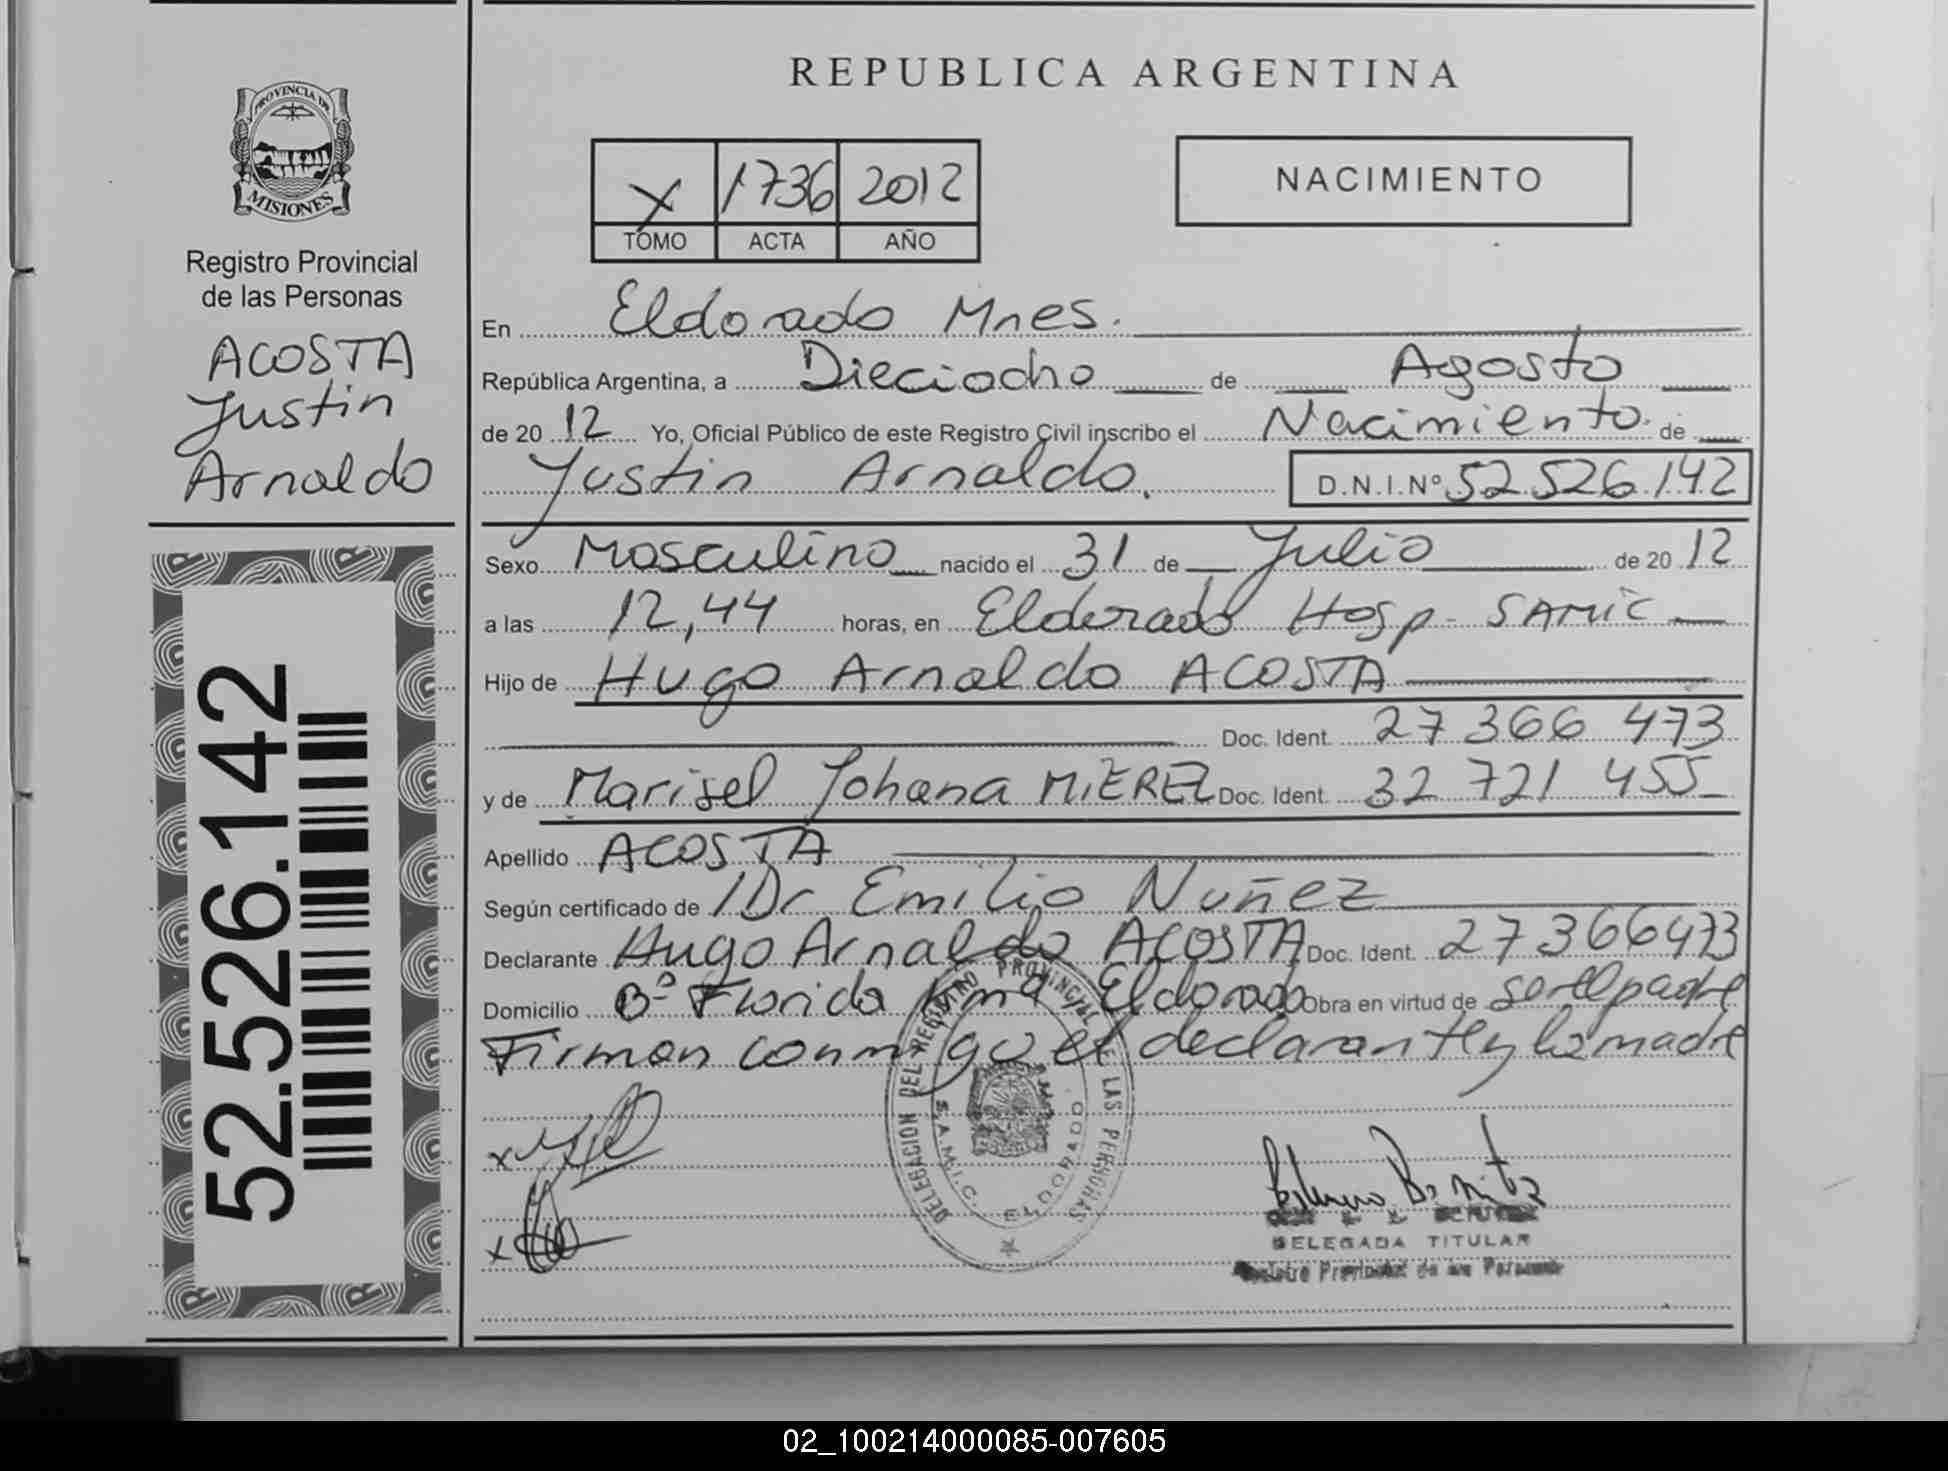 PROVINCIA DE
MISIONES
Registro Provincial
de las Personas
ACOSTA
Justin
Arnaldo
52.526.142
REPUBLICA ARGENTINA
X 1736 2012
TOMO ACTA AÑO
NACIMIENTO
En Eldorado Mnes.
República Argentina, a Dieciocho de Agosto
de 20 12 Yo, Oficial Público de este Registro Civil inscribo el Nacimiento de
Justin Arnaldo. D.N.I.Nº 52.526.142
Sexo Masculino nacido el 31 de Julio de 20 12
a las 12,44 horas, en Eldorado Hosp. SAMIC
Hijo de Hugo Arnaldo ACOSTA
Doc. Ident. 27 366 473
y de Marisel Johana MIEREZ Doc. Ident. 32 721 455
Apellido ACOSTA
Según certificado de Dr Emilio Nuñez
Declarante Hugo Arnaldo ACOSTA Doc. Ident. 27366473
Domicilio Bº Florida Eldorado Obra en virtud de ser el padre
Firman conmigo el declarante y la madre
DELEGACION DEL REGISTRO PROVINCIAL DE LAS PERSONAS
S.A.M.I.C. ELDORADO
DELEGADA TITULAR
Registro Provincial de las Personas
02_100214000085-007605